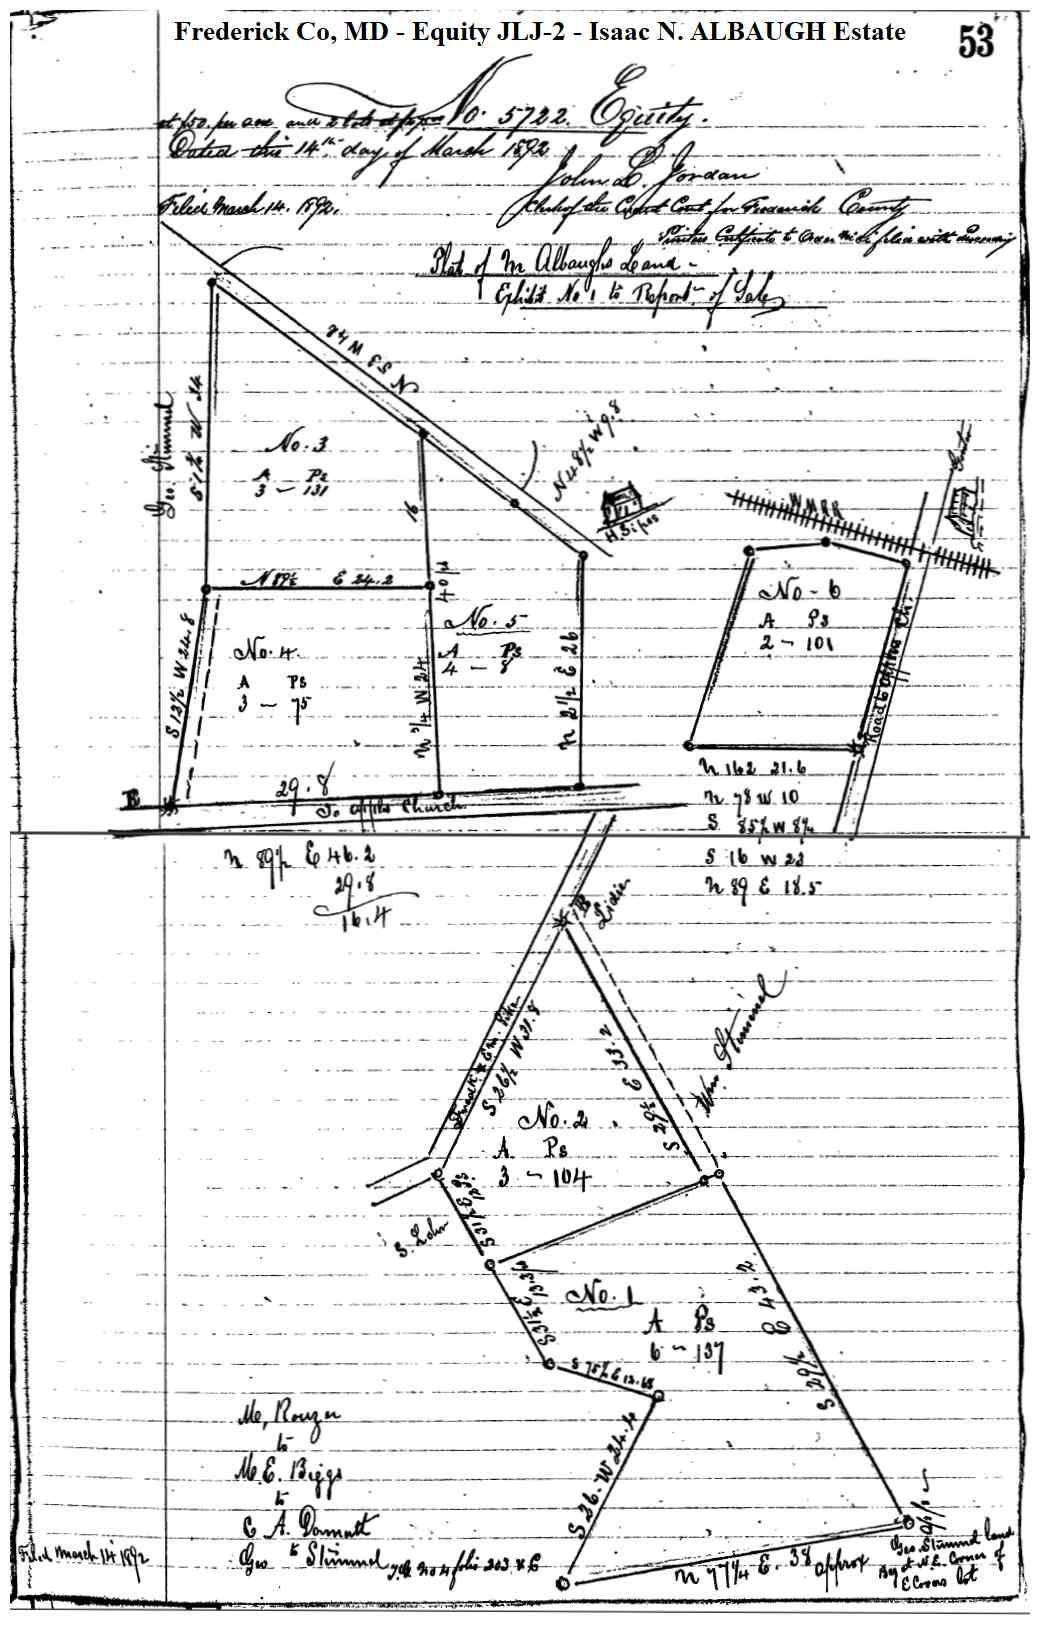 Frederick Co, MD - Equity JLJ-2 - Isaac N. ALBAUGH Estate
53
No. 5722. Equity.
at $50. per acre and 2 lots at
Dated this 14th day of March 1892
John L. Jordan
Filed March 14. 1892.
Clerk of the Circuit Court for Frederick County
Printers Certificate to Order Nisi filed with
Plat of M Albaughs Land -
Exhibit No 1 to Report of Sales
N 53 W 48
Geo. Stimmel
S 1½ W 34
No. 3
A Ps
3 - 131
16
N 48½ W 9.8
H Sipes
W M R R
No - 6
A Ps
2 - 101
Road to Ch.
N 89½ E 24.2
40
No. 5
A Ps
4 - 8
No. 4
A Ps
3 - 75
S 13½ W 24.8
N ¾ W 24
N 2½ E 26
B
29.8
To Church
N 16 E 21.6
N 78 W 10
S 85½ W 8¾
S 16 W 23
N 89 E 18.5
N 89½ E 46.2
29.8
16.4
B
Lidier
Fredk & Em. Pike
S 26½ W 31.8
S 29½ E 33.2
Wm Stimmel
No. 2
A Ps
3 - 104
S 31½ E
S. Lohr
S 31½ E
No. 1
A Ps
6 - 137
S 75½ E 13.65
S 29½ E 43.2
S 26 W 24.4
M, Rouzer
to
M. E. Biggs
to
C A. Damuth
to
Geo Stimmel
No 4 folio 203 &c
Filed March 14 1892
N 77¼ E. 38 approx
Geo. Stimmel land
By at N.E. Corner of
E Covers lot